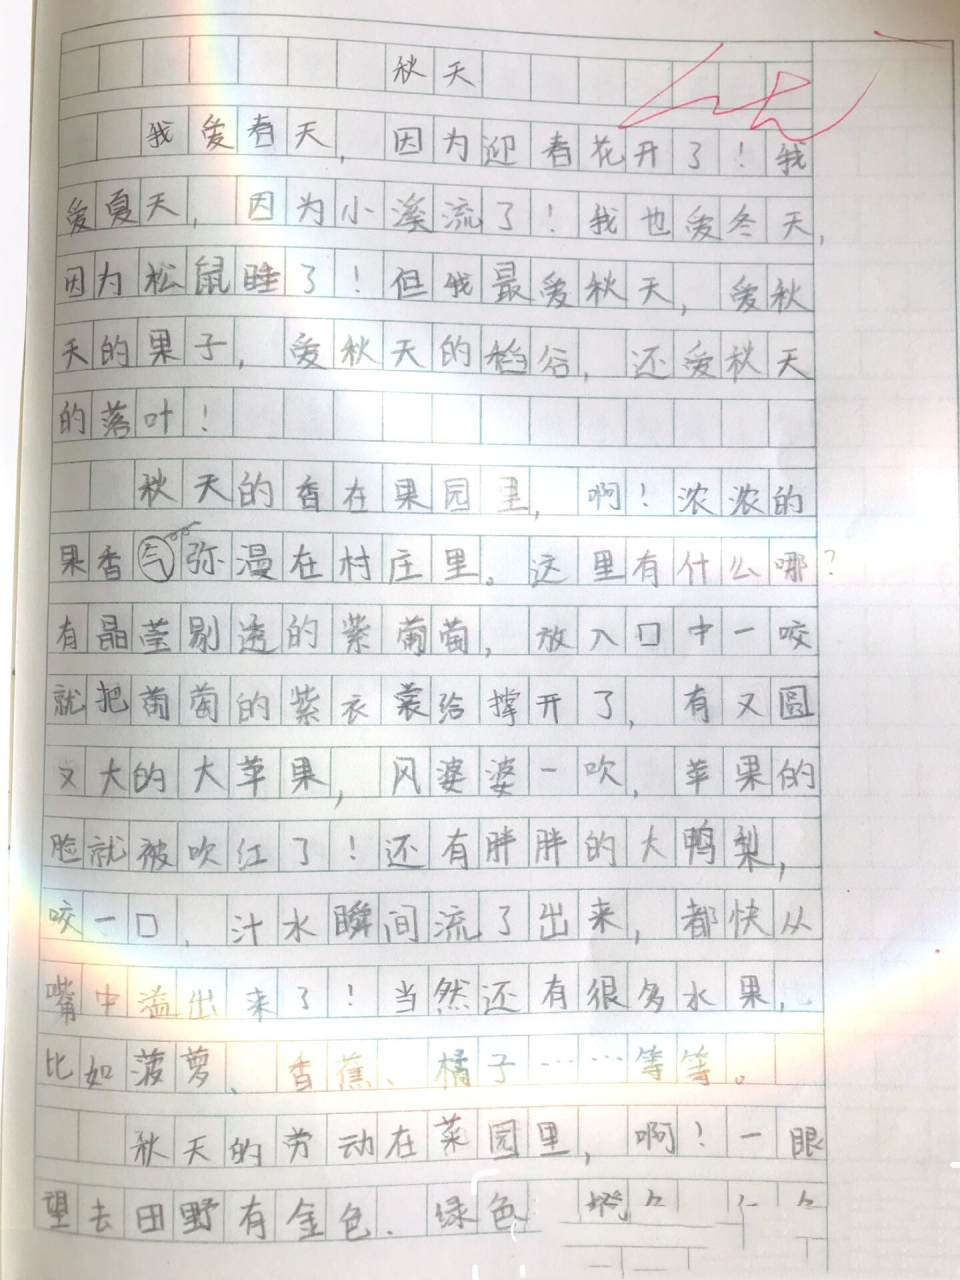 秋天
我爱春天，因为迎春花开了！我
爱夏天，因为小溪流了！我也爱冬天，
因为松鼠睡了！但我最爱秋天，爱秋
天的果子，爱秋天的稻谷，还爱秋天
的落叶！
秋天的香在果园里，啊！浓浓的
果香气弥漫在村庄里。这里有什么哪？
有晶莹剔透的紫葡萄，放入口中一咬
就把葡萄的紫衣裳给撑开了，有又圆
又大的大苹果，风婆婆一吹，苹果的
脸就被吹红了！还有胖胖的大鸭梨，
咬一口，汁水瞬间流了出来，都快从
嘴中溢出来了！当然还有很多水果，
比如菠萝、香蕉、橘子……等等。
秋天的劳动在菜园里，啊！一眼
望去田野有金色、绿色